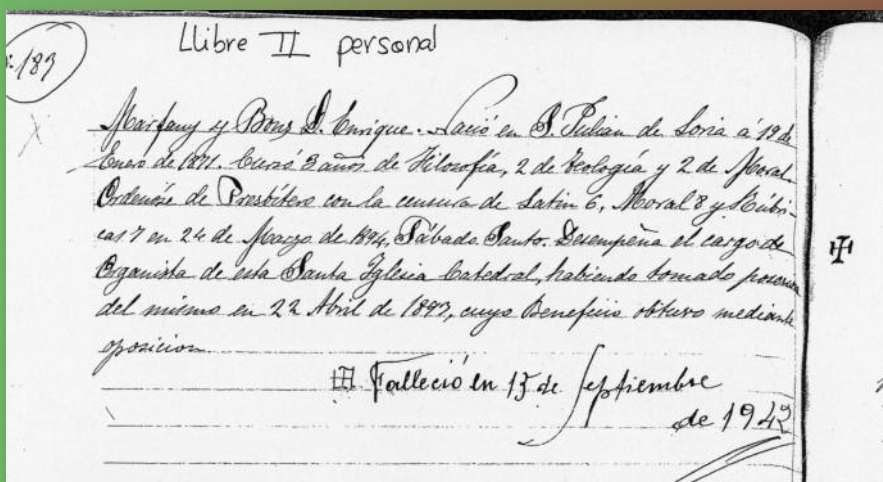 183
Llibre II personal
Marfany y Bons D. Enrique. Nació en S. Julian de Loria á 19 de
Enero de 1871. Cursó 3 años de Filosofía, 2 de Teología y 2 de Moral.
Ordenóse de Presbítero con la censura de Latin 6, Moral 8 y Rúbri-
cas 7 en 24 de Marzo de 1894, Sábado Santo. Desempeña el cargo de
Organista de esta Santa Iglesia Catedral, habiendo tomado posesion
del mismo en 22 Abril de 1893, cuyo Beneficio obtuvo mediante
oposicion
Falleció en 15 de Septiembre
de 1942